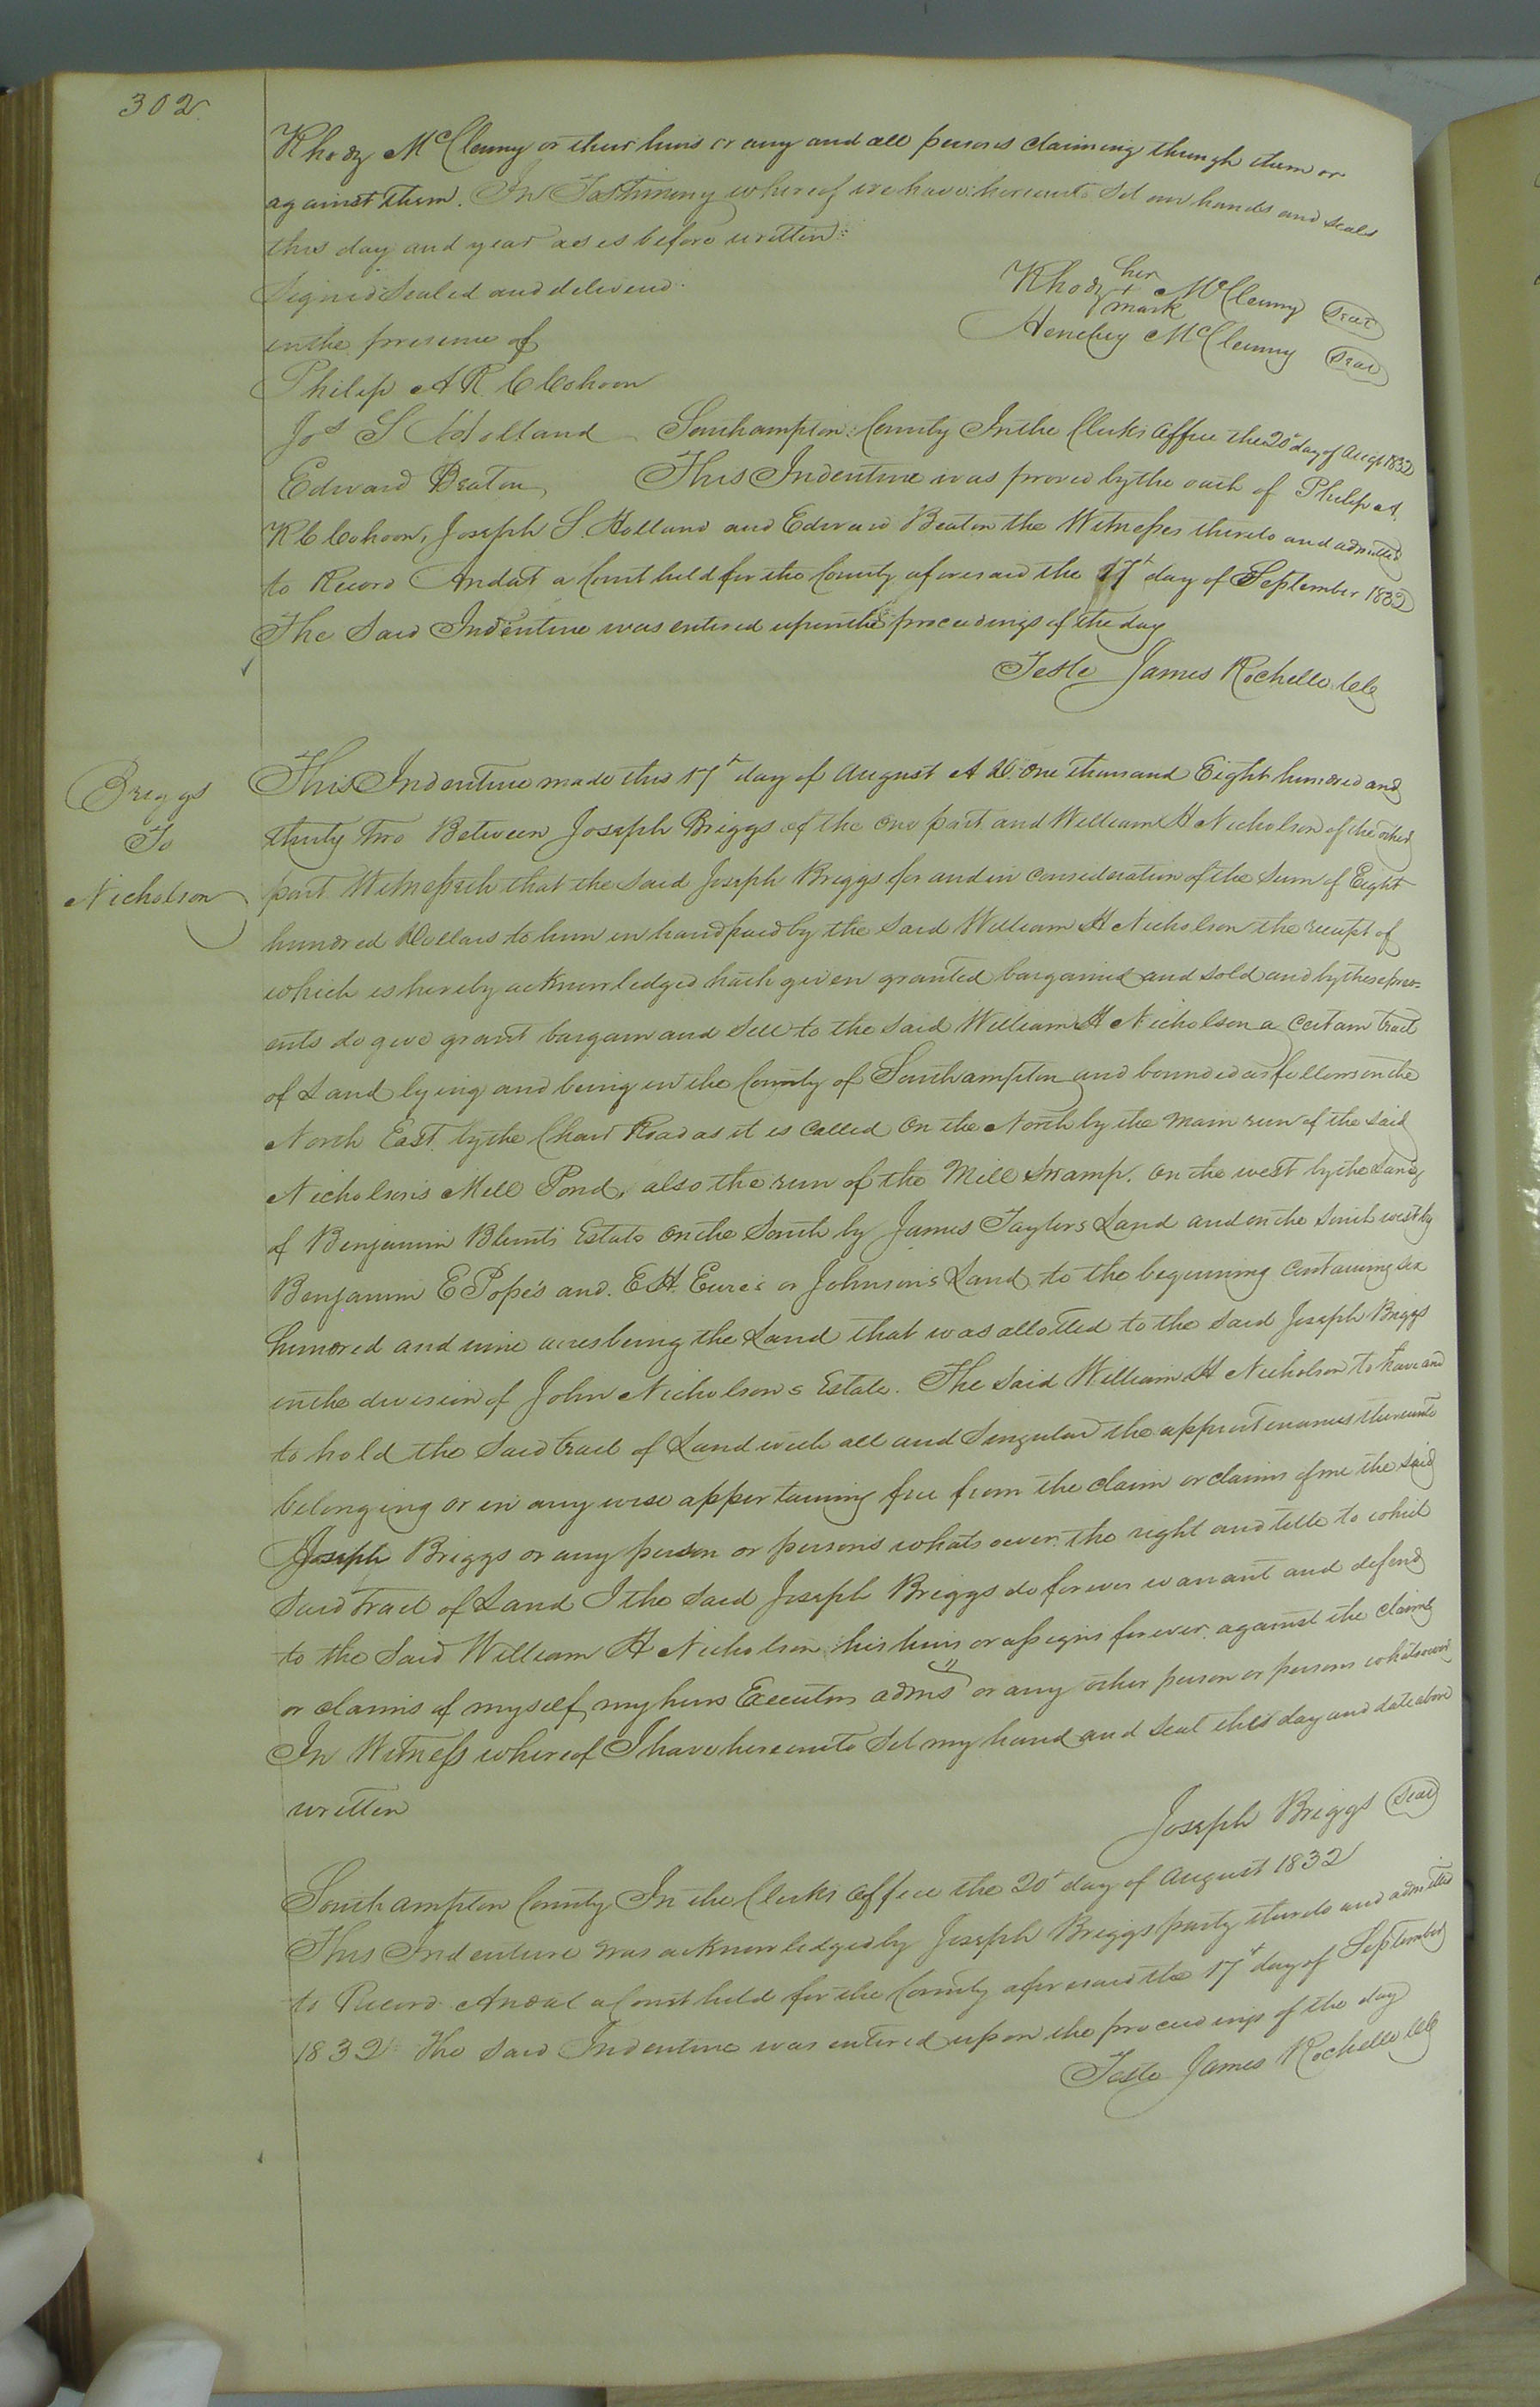 302
Rhody McClenny or their heirs or any and all persons claiming through them or
against them. In Testimony whereof we have hereunto Set our hands and seals
this day and year as is before written:
Signed Sealed and delivered
in the presence of
Rhody her + mark McClenny Seal
McClenny Seal
Philip A R C Cohoon
Jos S Holland Southampton County In the Clerks Office the 20t day of Augt 1832
Edward Beaton This Indenture was proved by the oath of Philip A.
R C Cohoon, Joseph S. Holland and Edward Beaton the Witnesses thereto and admitted
to Record And at a Court held for the County aforesaid the 17t day of September 1832
The Said Indenture was entered upon the proceedings of the day
Teste James Rochelle Clk
Briggs
To
Nicholson
This Indenture made this 17t day of August A D. One thousand Eight hundred and
thirty two Between Joseph Briggs of the one part and William H Nicholson of the other
part Witnesseth that the Said Joseph Briggs for and in consideration of the Sum of Eight
hundred Dollars to him in hand paid by the Said William H Nicholson the receipt of
which is hereby acknowledged hath given granted bargained and sold and by these pres-
ents do give grant bargain and Sell to the Said William H Nicholson a Certain tract
of Land lying and being in the County of Southampton and bounded as follows on the
North East by the Road as it is Called On the North by the main run of the Said
Nicholson's Mill Pond, also the run of the Mill Swamp. On the west by the Land
of Benjamin Blunts Estate On the South by James Taylors Land and on the South west by
Benjamin E Pope's and E. H. Eure's or Johnson's Land to the beginning Containing Six
hundred and nine acres being the Land that was allotted to the Said Joseph Briggs
in the division of John Nicholsons Estate. The Said William H Nicholson to have and
to hold the Said tract of Land with all and Singular the appurtenances thereunto
belonging or in any wise appertaining free from the claim or claims of me the Said
Joseph Briggs or any person or persons whatsoever. the right and title to which
Said Tract of Land I the Said Joseph Briggs do forever warrant and defend
to the Said William H Nicholson his heirs or assigns forever against the claim
or claims of myself, my heirs Executors adms or any other person or persons whatsoever
In Witness whereof I have hereunto Set my hand and Seal this day and date above
written
Joseph Briggs Seal
Southampton County In the Clerks Office the 20t day of August 1832
This Indenture was acknowledged by Joseph Briggs party thereto and admitted
to Record And at a Court held for the County aforesaid the 17t day of September
1832 The Said Indenture was entered upon the proceedings of the day
Teste James Rochelle Clk